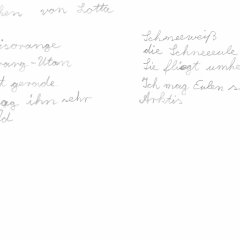 hen von Lotta
isorange
rang-Utan
t gerade.
ag ihn sehr
ld
Schneeweiß
die Schneeeule
Sie fliegt umhe
Ich mag Eulen s
Arktis